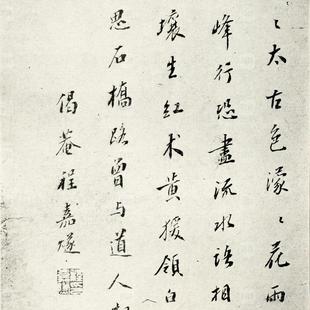 太古色濛〻花雨
峰行恐盡流水語相
壤生紅术黄猨領白
思石橋路曾与道人
偈菴程嘉燧